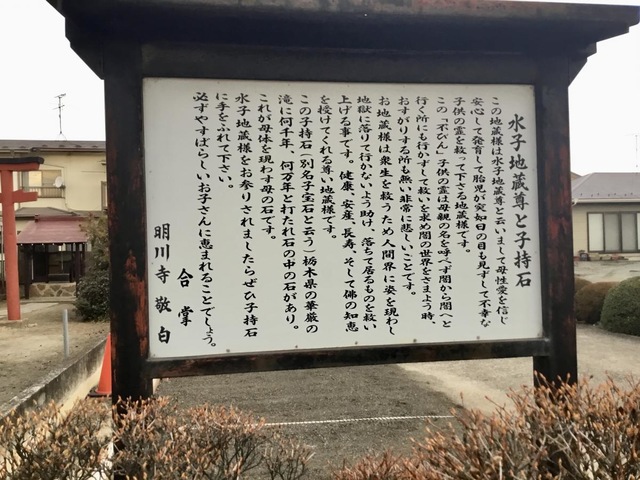 水子地蔵尊と子持石
この地蔵様は水子地蔵尊と云いまして母性愛を信じ
安心して発育して胎児が突如日の目も見ずして不幸な
子供の霊を救って下さる地蔵様です。
この「不びん」子供の霊は母親の名を呼べず闇から闇へと
行く所にも行かずして救いを求め闇の世界をさまよう時
おすがりする所も無い非常に悲しいことです。
お地蔵様は衆生を救うため人間界に姿を現わし
地獄に落りて行かないよう助け、落ちて居るものを救い
上げる事です。健康、安産、長寿、そして佛の知恵
を授けてくれる尊い地蔵様です。
この子持石(別名子宝石と云う)栃木県の華厳の
滝に何千年、何万年と打たれ石の中の石があり。
これが母体を現わす母の石です。
水子地蔵様をお参りされましたらぜひ子持石
に手をふれて下さい。
必ずやすばらしいお子さんに恵まれることでしょう。
合掌
明川寺敬白